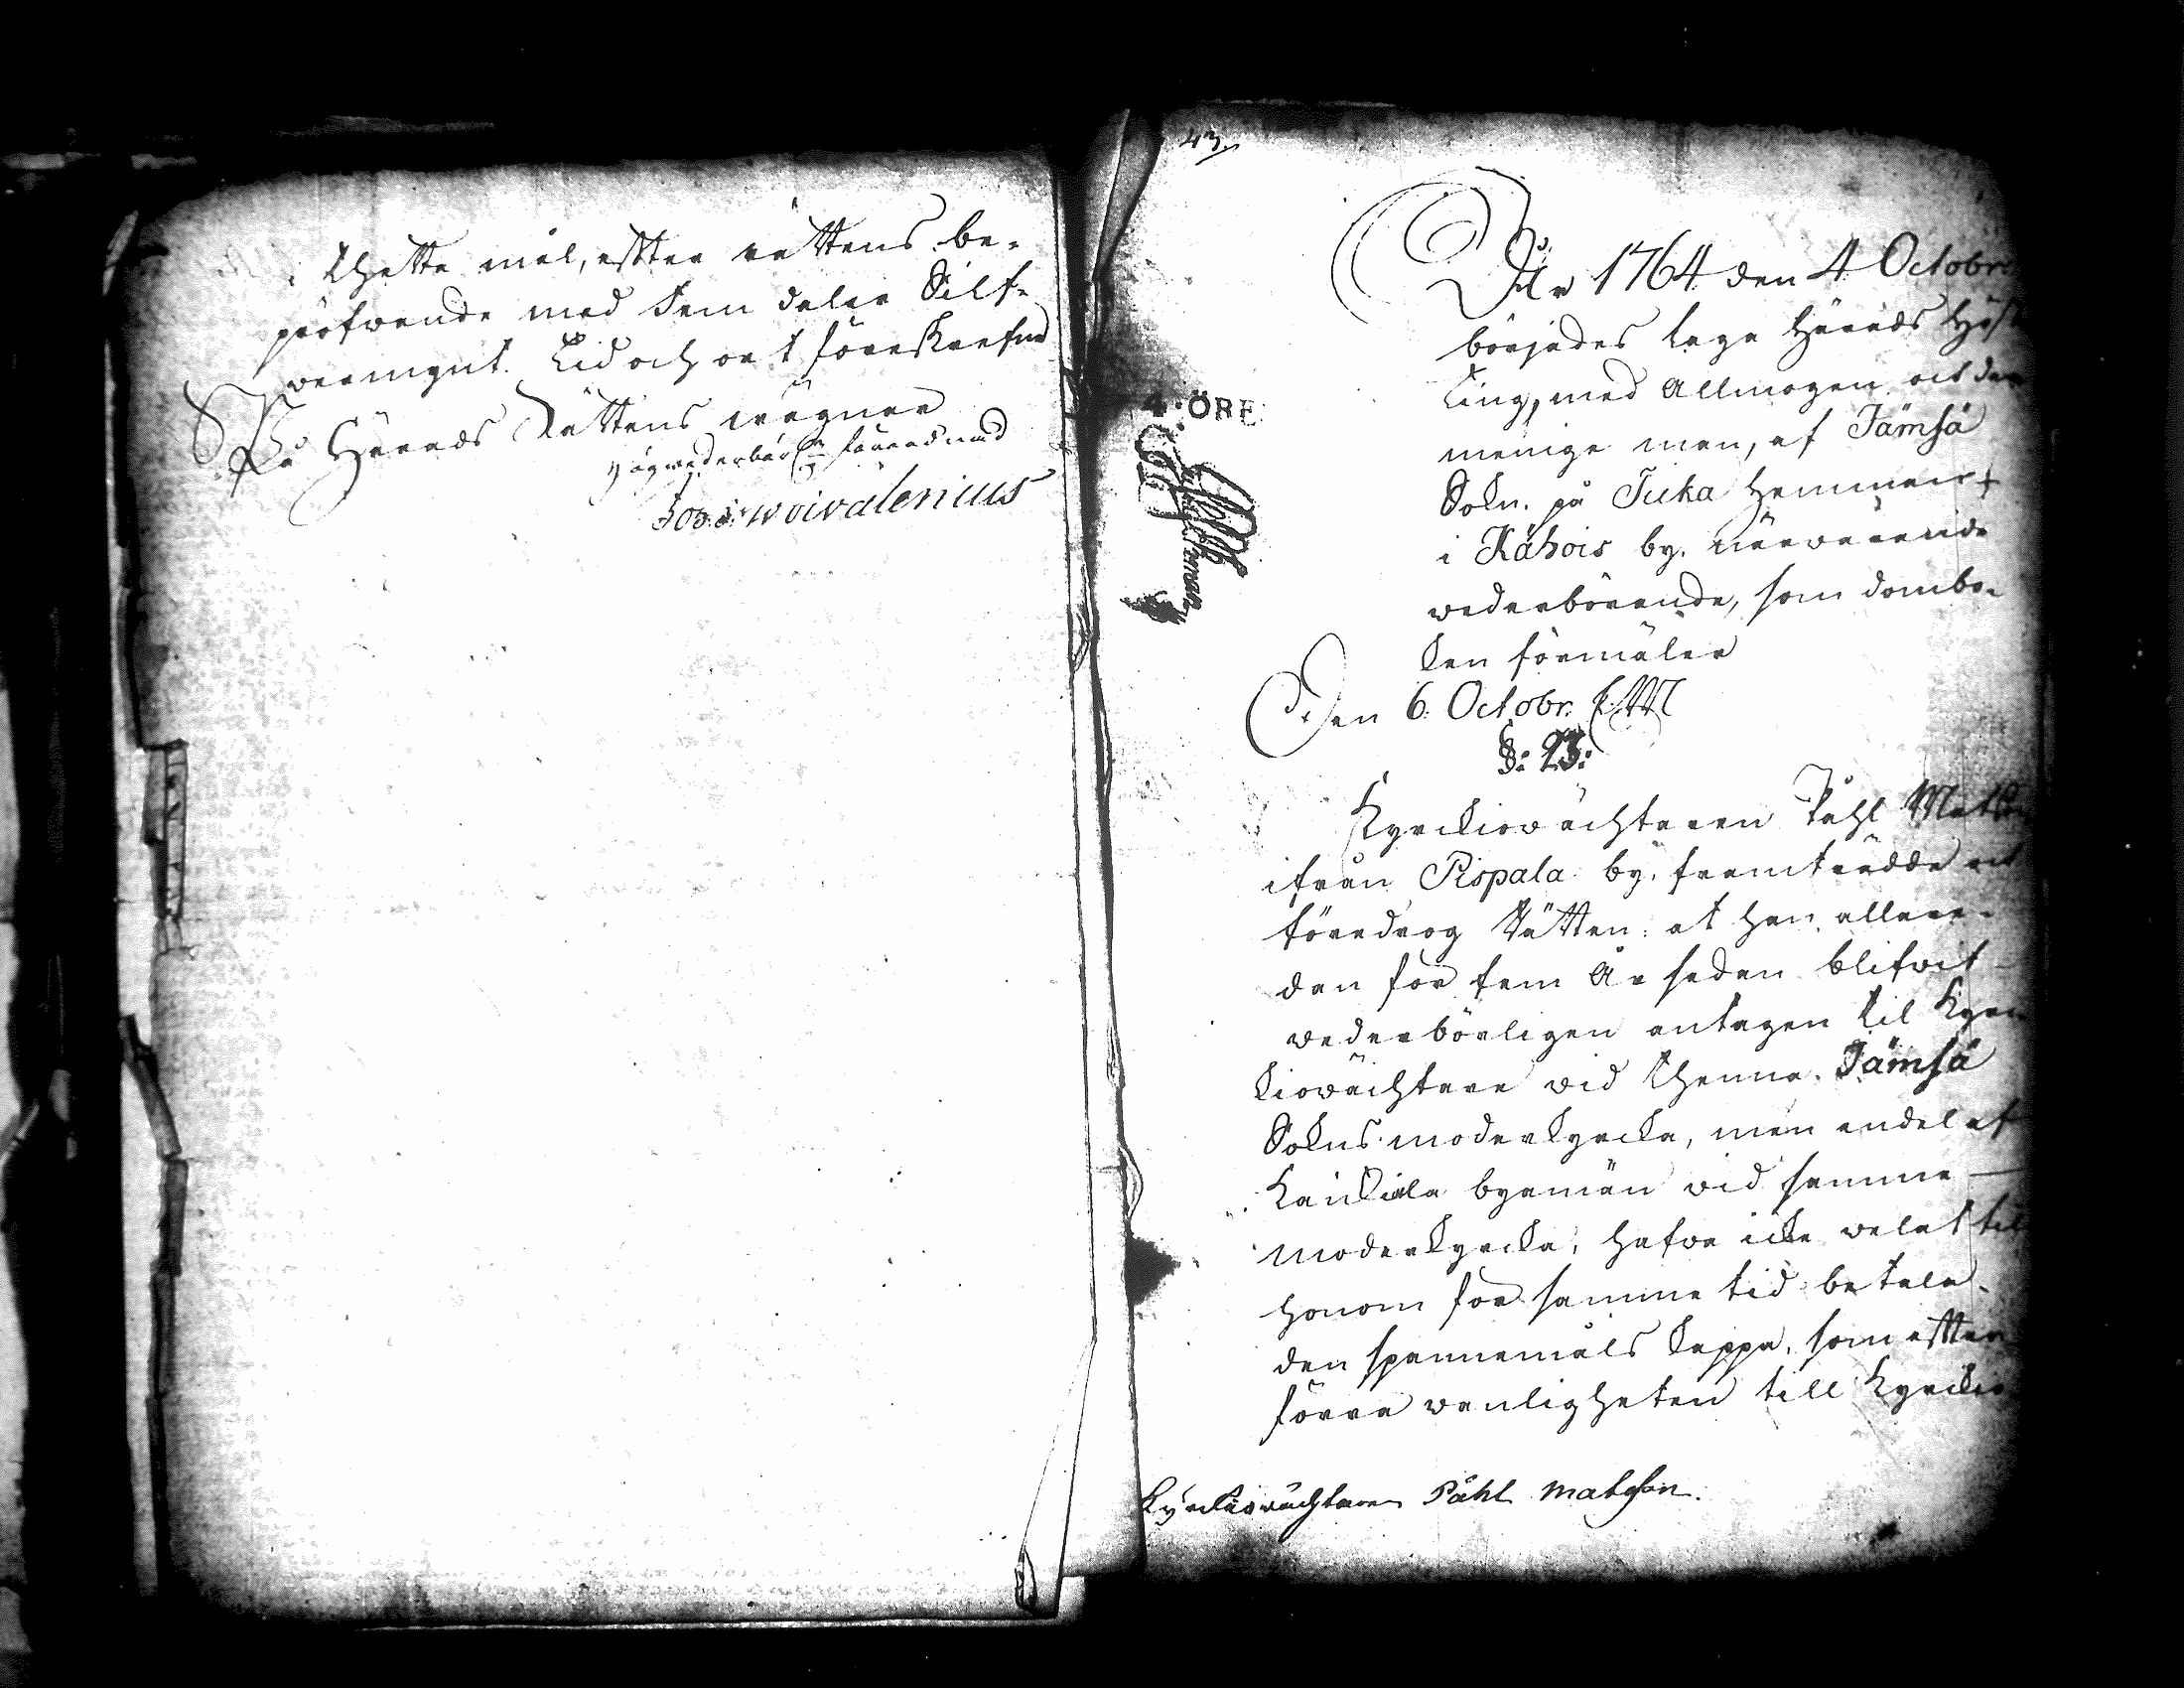 thetta mål, efter rättens be-
pröfwande med Fem daler Silf-
wermynt. Tid och ort föreskrefne
På Härads Rättens wägnar
Högwederbörl. förordnad
Joh: Woivalenius
43.
4. ÖRE
År 1764 den 4 Octobr
börjades laga Härads Höst
Ting, med Allmogen och den
menige man, af Jämsä
Sokn. på Juka Hemman
i Kåhois by, närwarande
wederbörande, som dombo-
ken förmäler
Den 6. Octobr.
§: 23:
Kyrckiowächtaren Påhl Mats
ifrån Pispala by, framträdde och
föredrog Rätten: at han allare-
dan för fem År sedan blifwit
wederbörligen antagen til Kyrc
kiowächtare wid thenna Jämsä
Sokns moderkyrcka, men endel af
byamän wid samma
moderkyrcka, hafwa icke welat til
honom för samma tid betala
den spannemåls kappa, som efter
förra wanligheten till Kyrckio
Kyrckiowächtaren Påhl Matsson.